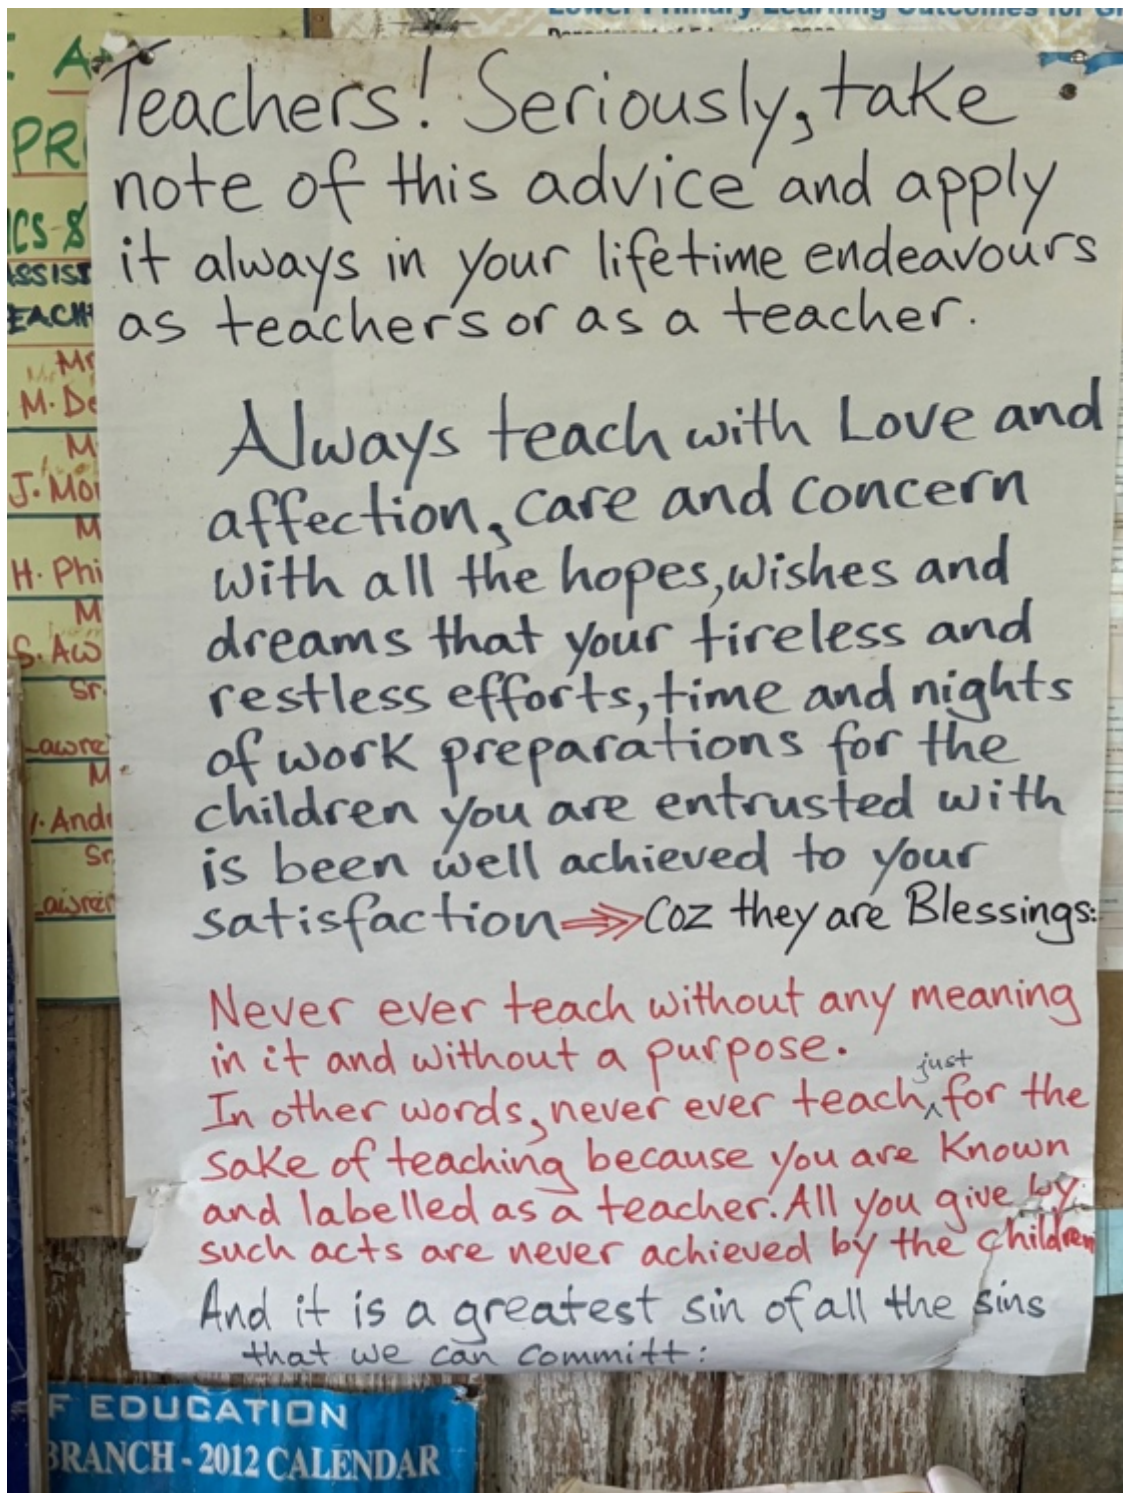 Lower Primary Learning Outcomes for
Teachers! Seriously, take
note of this advice and apply
it always in your lifetime endeavours
as teachers or as a teacher.
Always teach with Love and
affection, care and concern
with all the hopes, wishes and
dreams that your tireless and
restless efforts, time and nights
of work preparations for the
children you are entrusted with
is been well achieved to your
satisfaction ⇒ Coz they are Blessings:
Never ever teach without any meaning
in it and without a purpose.
just
In other words, never ever teach ^ for the
sake of teaching because you are Known
and labelled as a teacher. All you give by
such acts are never achieved by the children
And it is a greatest sin of all the sins
that we can committ:
A
PR
CS &
ASSIST
EACH
Mr
M. De
M
J. Mor
M
H. Phi
M
S. Aw
Sr
Lawre
M
Andr
Sr
Lawren
F EDUCATION
BRANCH - 2012 CALENDAR